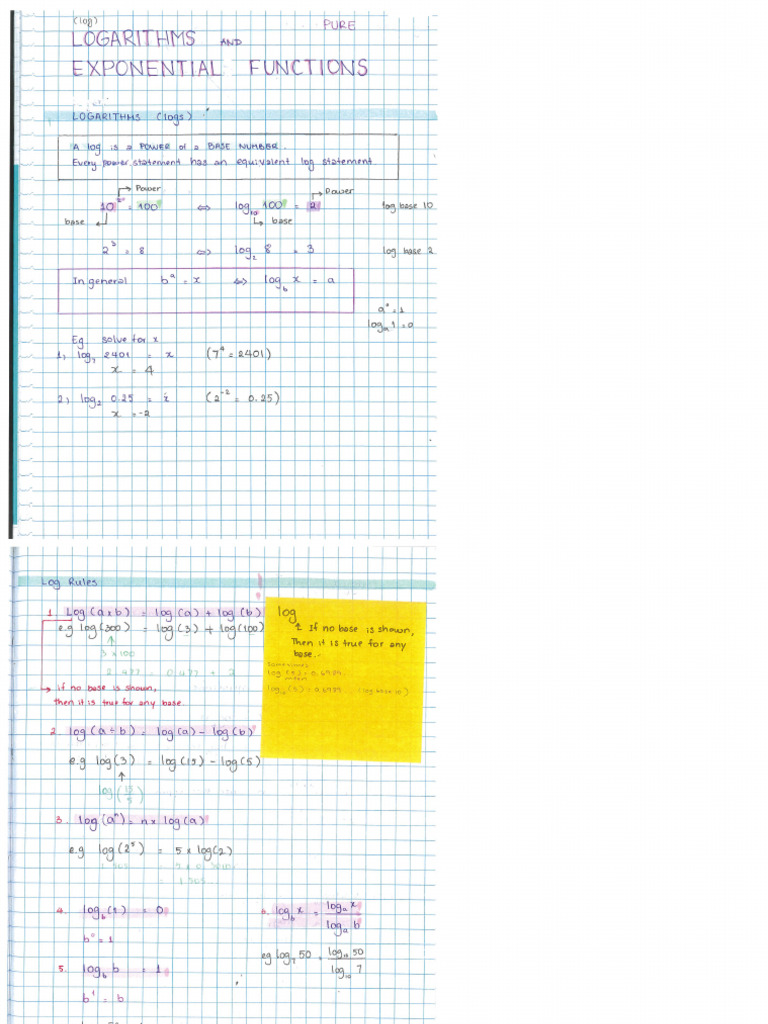 (log)
PURE
LOGARITHMS AND
EXPONENTIAL FUNCTIONS
LOGARITHMS (logs)
A log is a POWER of a BASE NUMBER.
Every power statement has an equivalent log statement
Power
Power
10² = 100 ⇔ log₁₀ 100 = 2 log base 10
base
base
2³ = 8 ⇔ log₂ 8 = 3 log base 2
In general bᵃ = x ⇔ log_b x = a
a⁰ = 1
logₐ 1 = 0
Eg. solve for x
1) log₇ 2401 = x (7⁴ = 2401)
x = 4
2) log₂ 0.25 = x (2⁻² = 0.25)
x = -2
Log Rules
1. Log (a×b) = log (a) + log (b)
e.g log (300) = log (3) + log (100)
3 × 100
2.477 = 0.477 + 2
if no base is shown,
then it is true for any base.
log
If no base is shown,
Then it is true for any
base.
log (5) = 0.6989
log₁₀ (5) = 0.6989 (log base 10)
2. log (a÷b) = log (a) - log (b)
e.g log (3) = log (15) - log (5)
log (15/5)
3. log (aⁿ) = n × log (a)
e.g log (2⁵) = 5 × log (2)
1.505
= 1.505
4. log_b (1) = 0
b⁰ = 1
5. log_b b = 1
b¹ = b
6. log_b x = logₐ x / logₐ b
eg log₇ 50 = log₁₀ 50 / log₁₀ 7